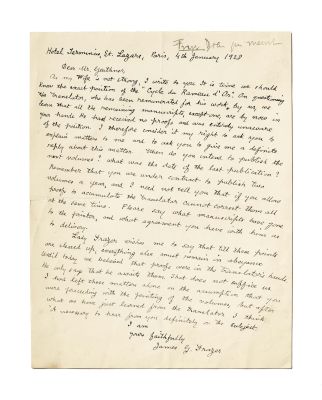 Hotel Terminus, St. Lazare, Paris, 4th January 1928
Dear Mr. Geuthner,
As my wife is not strong, I write to you. It is time we should
know the exact position of the "Cycle du Rameau d'Or". On questioning
the Translator, who has been remunerated for his work, by us, we
learn that all the remaining manuscripts, except one, are by now in
your hands. He had received no proofs and was entirely unaware
of the position. I therefore consider it my right to ask you to
explain matters to me and to ask you to give me a definite
reply about this matter. When do you intend to publish the
next volume? What was the date of the last publication?
Remember that you are under contract to publish two
volumes a year, and I need not tell you that if you allow
proofs to accumulate the Translator cannot correct them all
at the same time. Please say what manuscripts have gone
to the printer, and what agreement you have with him as
to delivery.
Lady Frazer wishes me to say that till these points
are cleared up, everything else must remain in abeyance.
Until today we believed that proofs were in the Translator's hands.
He only says that he awaits them. That does not suffice us.
I had left these matters alone on the assumption that you
were proceeding with the printing of the volumes, but after
what we have just learned from the Translator I think
it necessary to hear from you definitely on the subject.
I am
yours faithfully
James G. Frazer